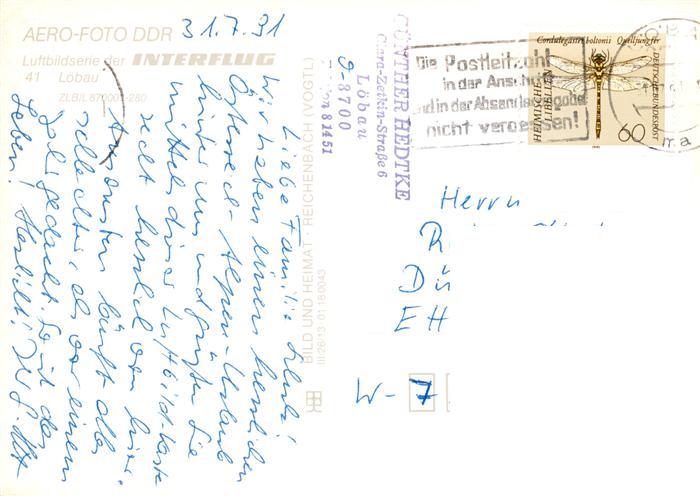 AERO-FOTO DDR
Luftbildserie der INTERFLUG
41 Löbau
ZLB/L 870001-280
31.7.91
Liebe Familie
Wir haben einen herrlichen
Österreich-Alpen-Urlaub
hinter uns und grüßen Sie
mittels dieser Luftbild-Karte
recht herzlich von hier.
Ansonsten läuft alles
schlechter, als vor einem
Jahr gedacht. So ist das
Leben! Herzlichst!
BILD UND HEIMAT · REICHENBACH (VOGTL)
III/26/13 01 18 0043
GÜNTHER HEDTKE
Clara-Zetkin-Straße 6
Löbau
O-8700
81451
Die Postleitzahl
in der Anschrift
und in der Absenderangabe
nicht vergessen!
Cordulegaster boltonii Quelljungfer
HEIMISCHE LIBELLEN
DEUTSCHE BUNDESPOST
60
1991
Herrn
R
Dü
EH
W-7